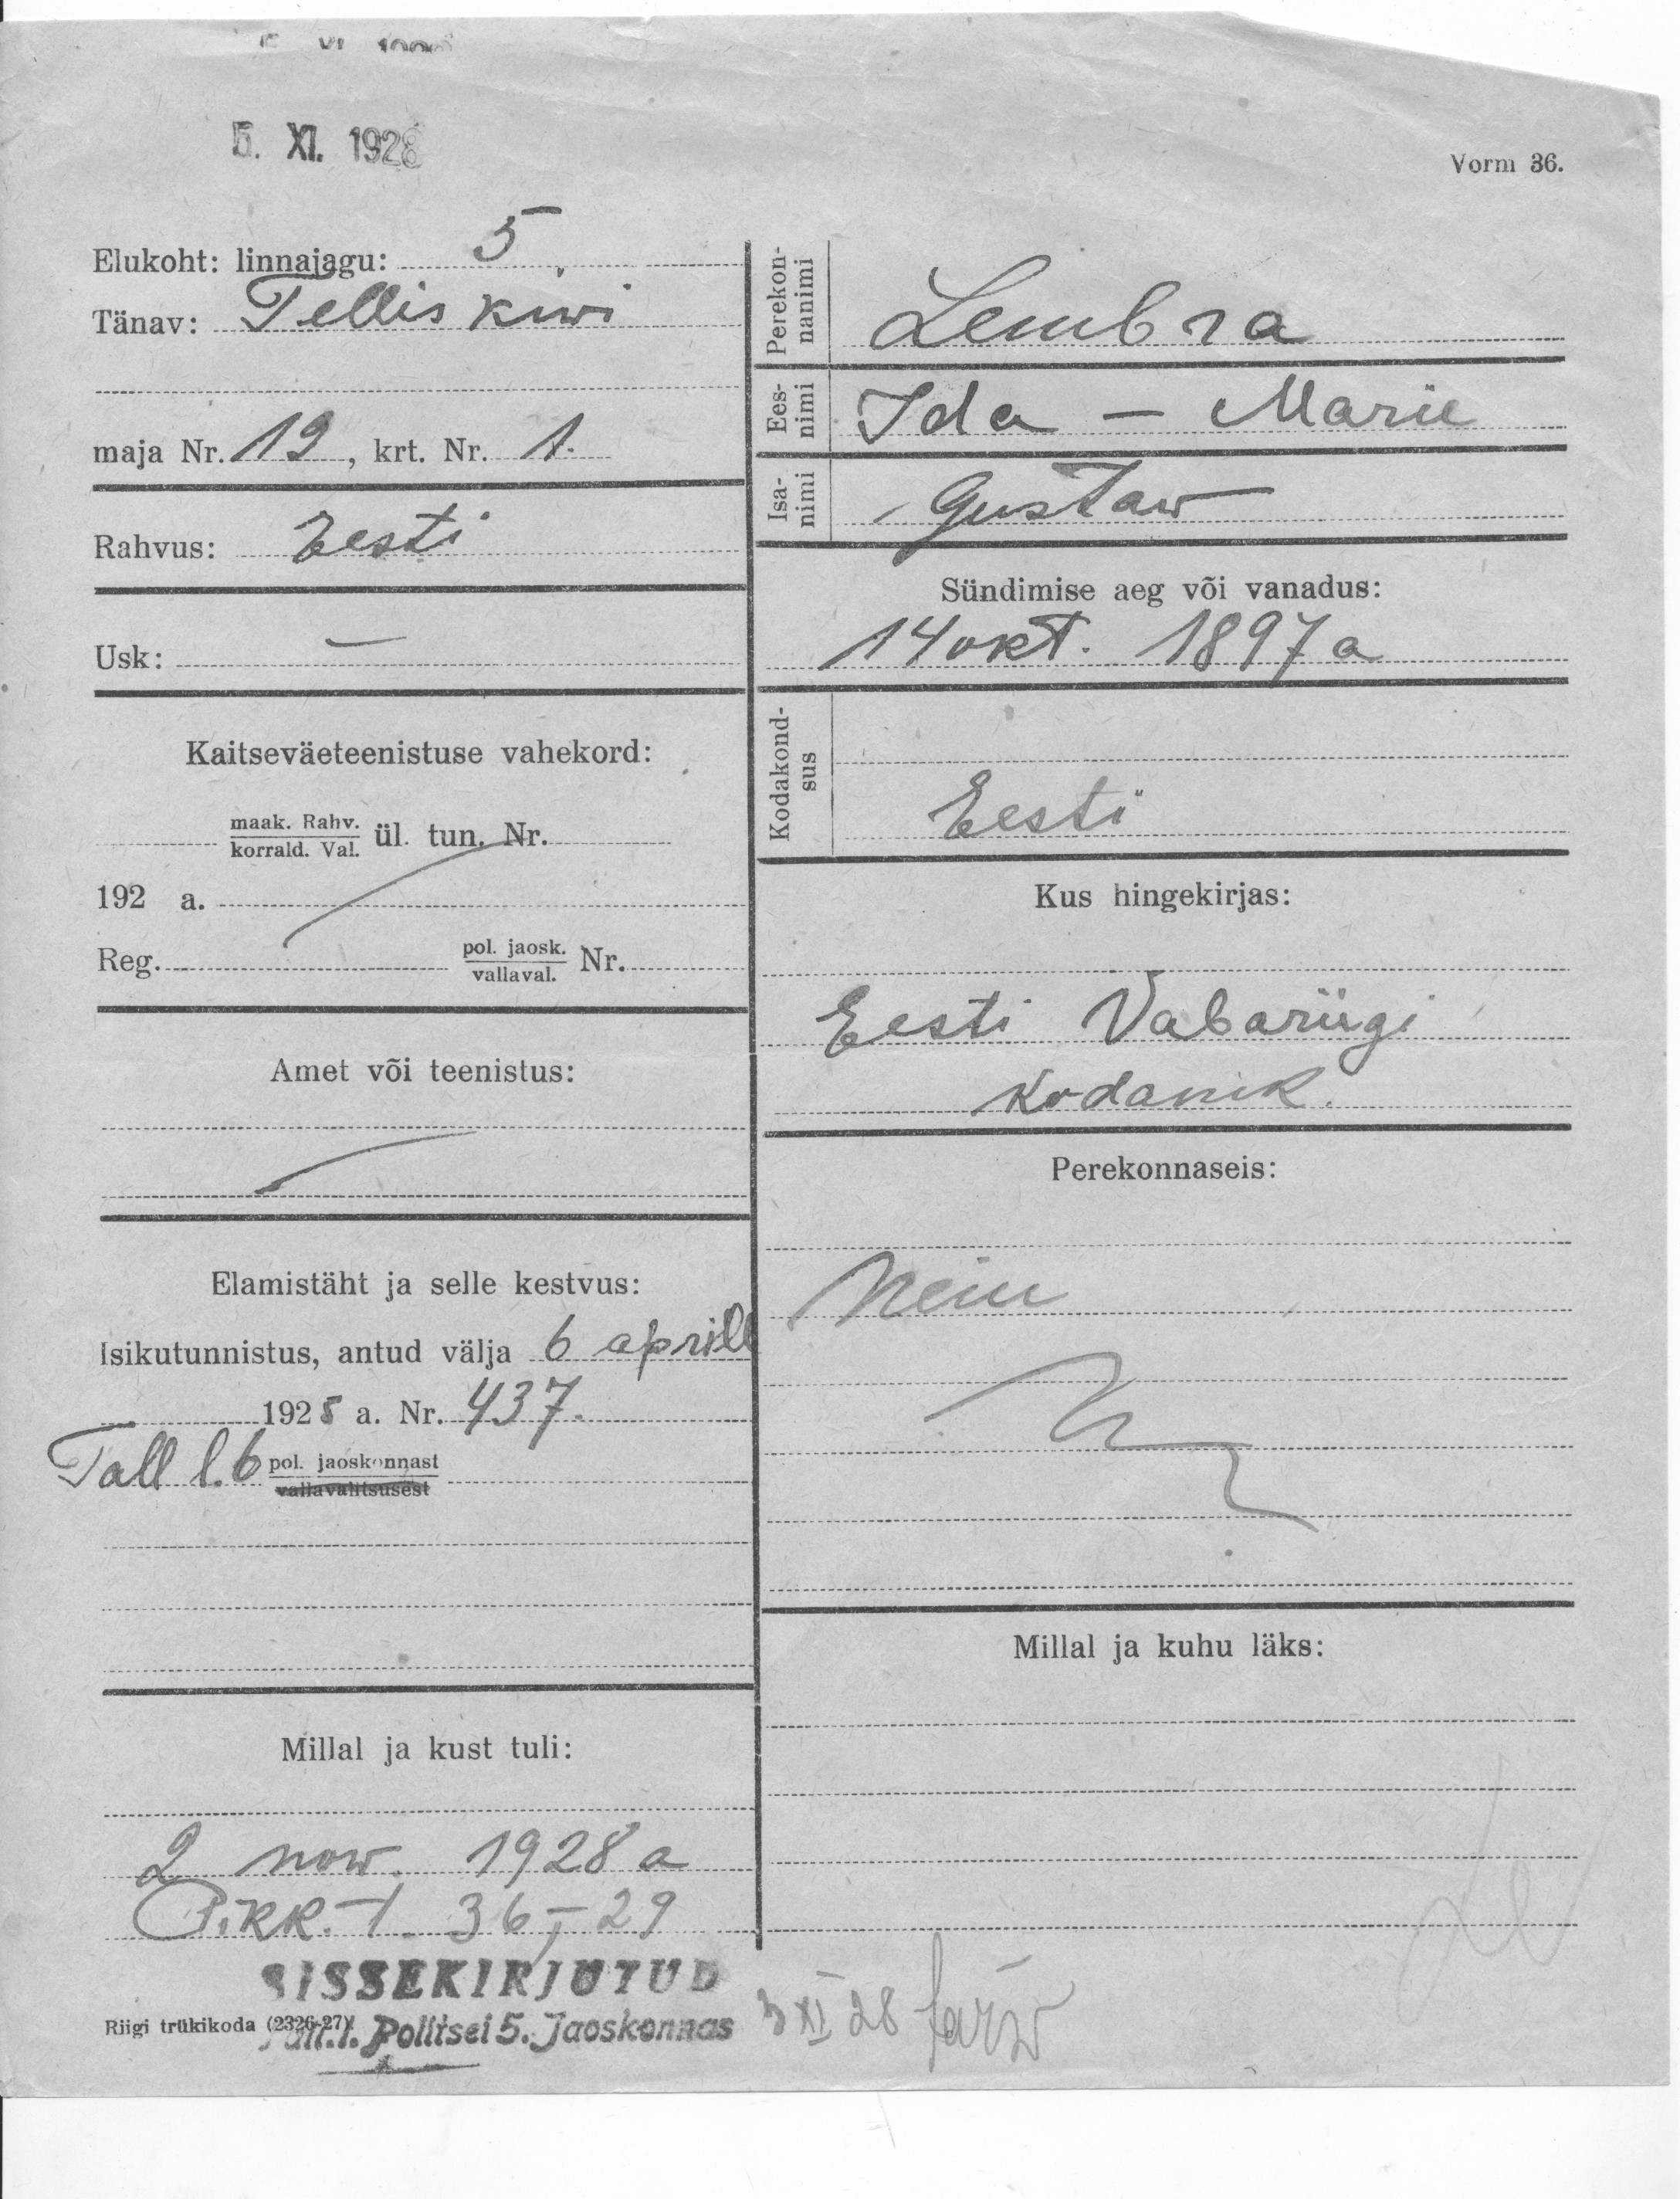 5. XI. 1928
Vorm 36.
Elukoht: linnajagu: 5
Tänav: Telliskiwi
maja Nr. 19, krt. Nr. 1.
Rahvus: Eesti
Usk: —
Kaitseväeteenistuse vahekord:
maak. Rahv.
korrald. Val. ül. tun. Nr.
192 a.
Reg. pol. jaosk.
vallaval. Nr.
Amet või teenistus:
Elamistäht ja selle kestvus:
Isikutunnistus, antud välja 6 aprill
1928 a. Nr. 437.
Tall l. 6 pol. jaoskonnast
vallavalitsusest
Millal ja kust tuli:
2 now. 1928 a
Pikk. t 36–29
SISSEKIRJUTUD
Riigi trükikoda (2326-27)
Tall. l. Politsei 5. Jaoskonnas
Perekon-
nanimi
Lembra
Ees-
nimi
Ida – Marie
Isa-
nimi
Gustaw
Sündimise aeg või vanadus:
14 okt. 1897 a
Kodakond-
sus
Eesti
Kus hingekirjas:
Eesti Vabariigi
kodanik.
Perekonnaseis:
Neiu
Millal ja kuhu läks:
XI 28